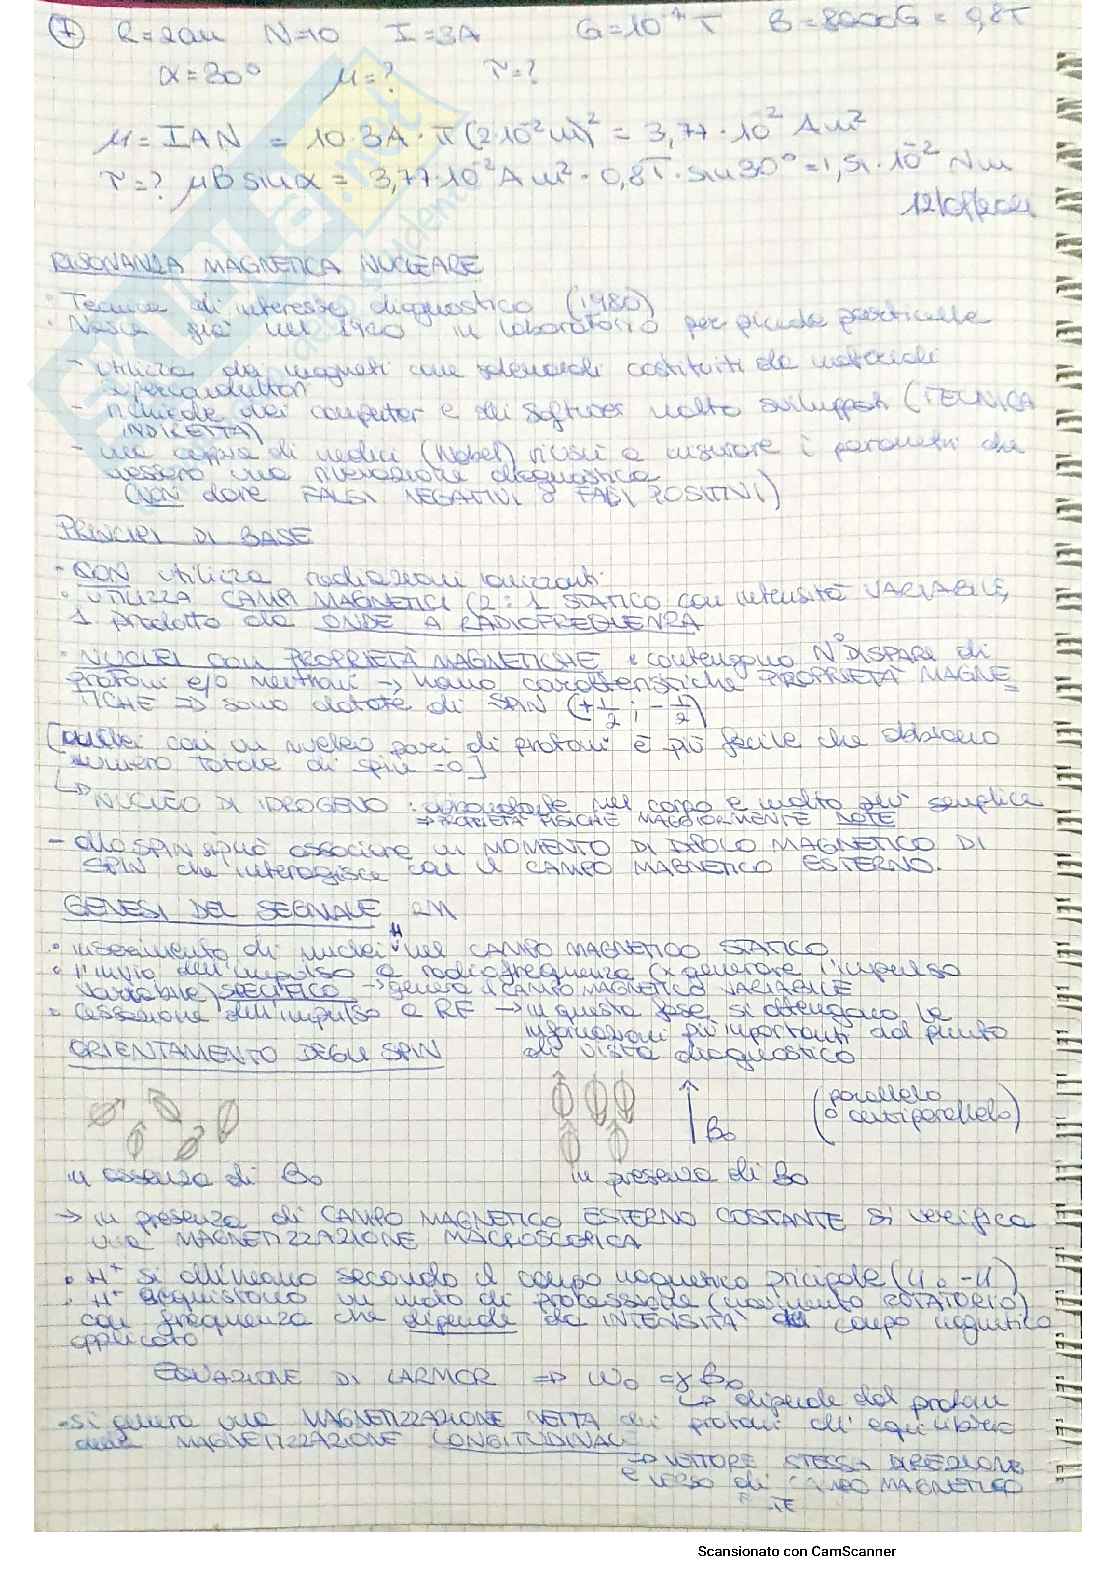 7 R=2cm N=10 I=3A G=10⁻⁴ T B=8000G = 0,8T
α=30° μ=? τ=?
μ=IAN = 10·3A·π(2·10⁻²m)² = 3,77·10⁻² Am²
τ=? μBsinα = 3,77·10⁻²Am²·0,8T·sin30°=1,51·10⁻² Nm
RISONANZA MAGNETICA NUCLEARE
° Tecnica di interesse diagnostico (1980)
° Nasce già nel in laboratorio per piccole particelle
- utilizza dei magneti con solenoidi costituiti da materiali
superconduttori
- richiede dei computer e dei software molto sviluppati (TECNICA
INDIRETTA)
- una coppia di medici (Nobel) riuscì a misurare i parametri che
dessero una rilevazione diagnostica
(NON dare FALSI NEGATIVI o FALSI POSITIVI)
PRINCIPI DI BASE
- NON utilizza radiazioni ionizzanti
° UTILIZZA CAMPI MAGNETICI (2: 1 STATICO con intensità VARIABILE,
1 prodotto da ONDE A RADIOFREQUENZA
° NUCLEI con PROPRIETÀ MAGNETICHE: contengono N° DISPARI di
protoni e/o neutroni → hanno caratteristiche PROPRIETÀ MAGNE=
TICHE ⇒ sono dotate di SPIN (+1/2 ; -1/2)
[nuclei con un nucleo pari di protoni è più facile che abbiano
numero totale di spin =0]
↳ NUCLEO DI IDROGENO: abbondante nel corpo e molto più semplice
⇒ PROPRIETÀ FISICHE MAGGIORMENTE NOTE
- allo SPIN si può associare un MOMENTO DI DIPOLO MAGNETICO DI
SPIN che interagisce con il CAMPO MAGNETICO ESTERNO.
GENESI DEL SEGNALE RM
° inserimento di nuclei H nel CAMPO MAGNETICO STATICO
° l'invio dell'impulso a radiofrequenza (x generare l'impulso
variabile) SPECIFICO → genera il CAMPO MAGNETICO VARIABILE
° cessazione dell'impulso a RF → in questa fase si ottengono le
informazioni più importanti dal punto
di vista diagnostico
ORIENTAMENTO DEGLI SPIN
B₀
(parallelo
o antiparallelo)
in assenza di B₀ in presenza di B₀
→ in presenza di CAMPO MAGNETICO ESTERNO COSTANTE si verifica
una MAGNETIZZAZIONE MACROSCOPICA
° H⁺ si allineano secondo il campo magnetico principale (μ o -μ)
° H⁺ acquistano un moto di precessione (movimento ROTATORIO)
con frequenza che dipende da INTENSITÀ del campo magnetico
applicato
EQUAZIONE DI LARMOR ⇒ ω₀ = γB₀
↳ dipende dal protone
- si genera una MAGNETIZZAZIONE NETTA dei protoni all'equilibrio
MAGNETIZZAZIONE LONGITUDINALE
⇒ VETTORE STESSA DIREZIONE
e verso di CAMPO MAGNETICO
Scansionato con CamScanner